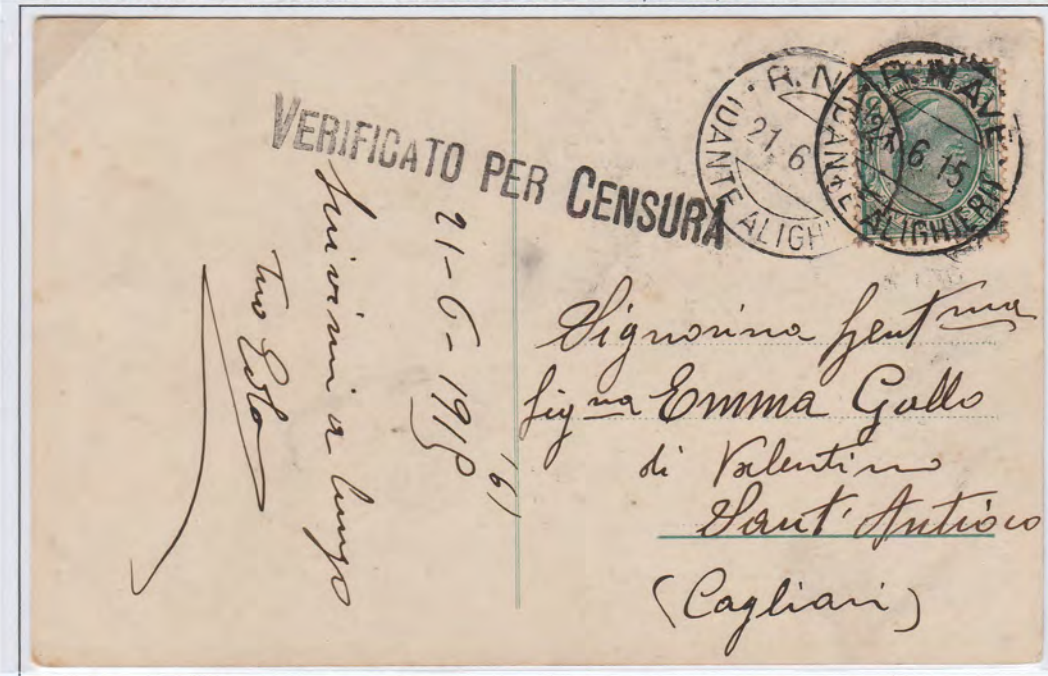 VERIFICATO PER CENSURA
R. N
(DANTE ALIGH
21. 6
R. NAVE
(DANTE ALIGHIERI)
21. 6. 15.
21-6-1915
(6)
a lungo
tuo
Signorina Gent ma
Sig na Emma Gallo
di Valentino
Sant' Antioco
(Cagliari)